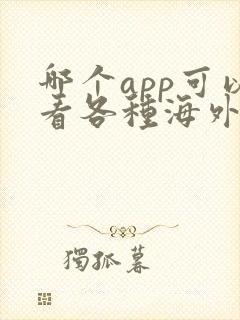 哪个app可以
看各種海外
獨孤暮